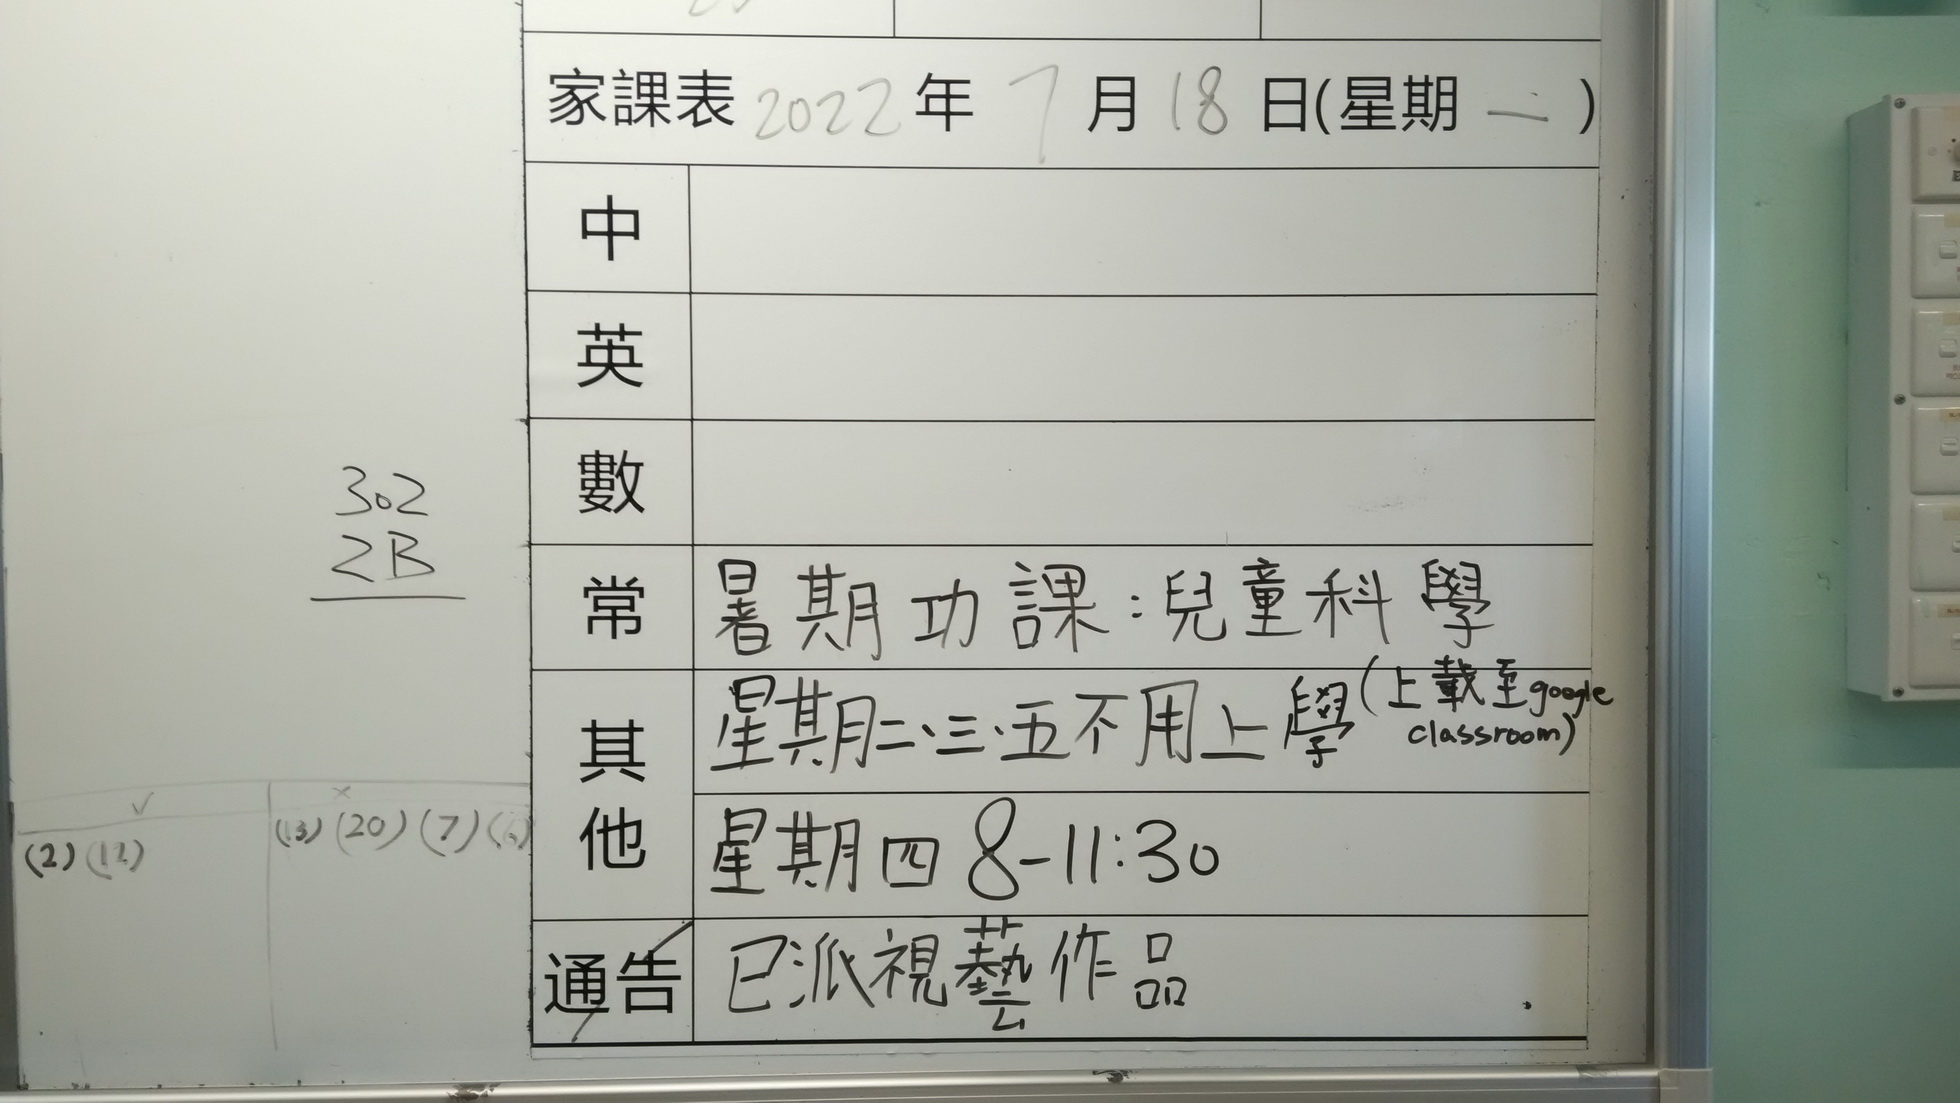 家課表 2022 年 7 月 18 日(星期 一 )
中
英
數
常 暑期功課:兒童科學
其他
星期二、三、五不用上學(上載至google
classroom)
星期四 8-11:30
通告 已派視藝作品
302
2B
✓ ×
(2) (12) (13) (20) (7)